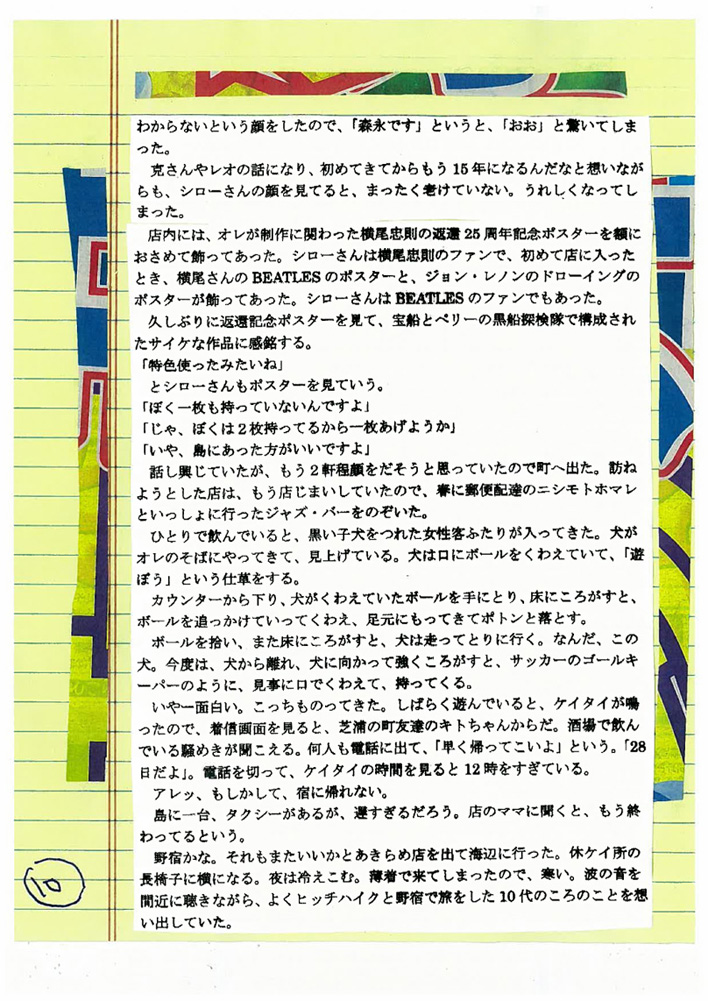 わからないという顔をしたので、「森永です」というと、「おお」と驚いてしま
った。
　克さんやレオの話になり、初めてきてからもう15年になるんだなと想いなが
らも、シローさんの顔を見てると、まったく老けていない。うれしくなってし
まった。
　店内には、オレが制作に関わった横尾忠則の返還25周年記念ポスターを額に
おさめて飾ってあった。シローさんは横尾忠則のファンで、初めて店に入った
とき、横尾さんのBEATLESのポスターと、ジョン・レノンのドローイングの
ポスターが飾ってあった。シローさんはBEATLESのファンでもあった。
　久しぶりに返還記念ポスターを見て、宝船とペリーの黒船探検隊で構成され
たサイケな作品に感銘する。
「特色使ったみたいね」
　とシローさんもポスターを見ていう。
「ぼく一枚も持っていないんですよ」
「じゃ、ぼくは2枚持ってるから一枚あげようか」
「いや、島にあった方がいいですよ」
　話し興じていたが、もう2軒程顔をだそうと思っていたので町へ出た。訪ね
ようとした店は、もう店じまいしていたので、春に郵便配達のニシモトホマレ
といっしょに行ったジャズ・バーをのぞいた。
　ひとりで飲んでいると、黒い子犬をつれた女性客ふたりが入ってきた。犬が
オレのそばにやってきて、見上げている。犬は口にボールをくわえていて、「遊
ぼう」という仕草をする。
　カウンターから下り、犬がくわえていたボールを手にとり、床にころがすと、
ボールを追っかけていってくわえ、足元にもってきてポトンと落とす。
　ボールを拾い、また床にころがすと、犬は走ってとりに行く。なんだ、この
犬。今度は、犬から離れ、犬に向かって強くころがすと、サッカーのゴールキ
ーパーのように、見事に口でくわえて、持ってくる。
　いやー面白い。こっちものってきた。しばらく遊んでいると、ケイタイが鳴
ったので、着信画面を見ると、芝浦の町友達のキトちゃんからだ。酒場で飲ん
でいる騒めきが聞こえる。何人も電話に出て、「早く帰ってこいよ」という。「28
日だよ」。電話を切って、ケイタイの時間を見ると12時をすぎている。
　アレッ、もしかして、宿に帰れない。
　島に一台、タクシーがあるが、遅すぎるだろう。店のママに聞くと、もう終
わってるという。
　野宿かな。それもまたいいかとあきらめ店を出て海辺に行った。休ケイ所の
長椅子に横になる。夜は冷えこむ。薄着で来てしまったので、寒い。波の音を
間近に聴きながら、よくヒッチハイクと野宿で旅をした10代のころのことを想
い出していた。
10